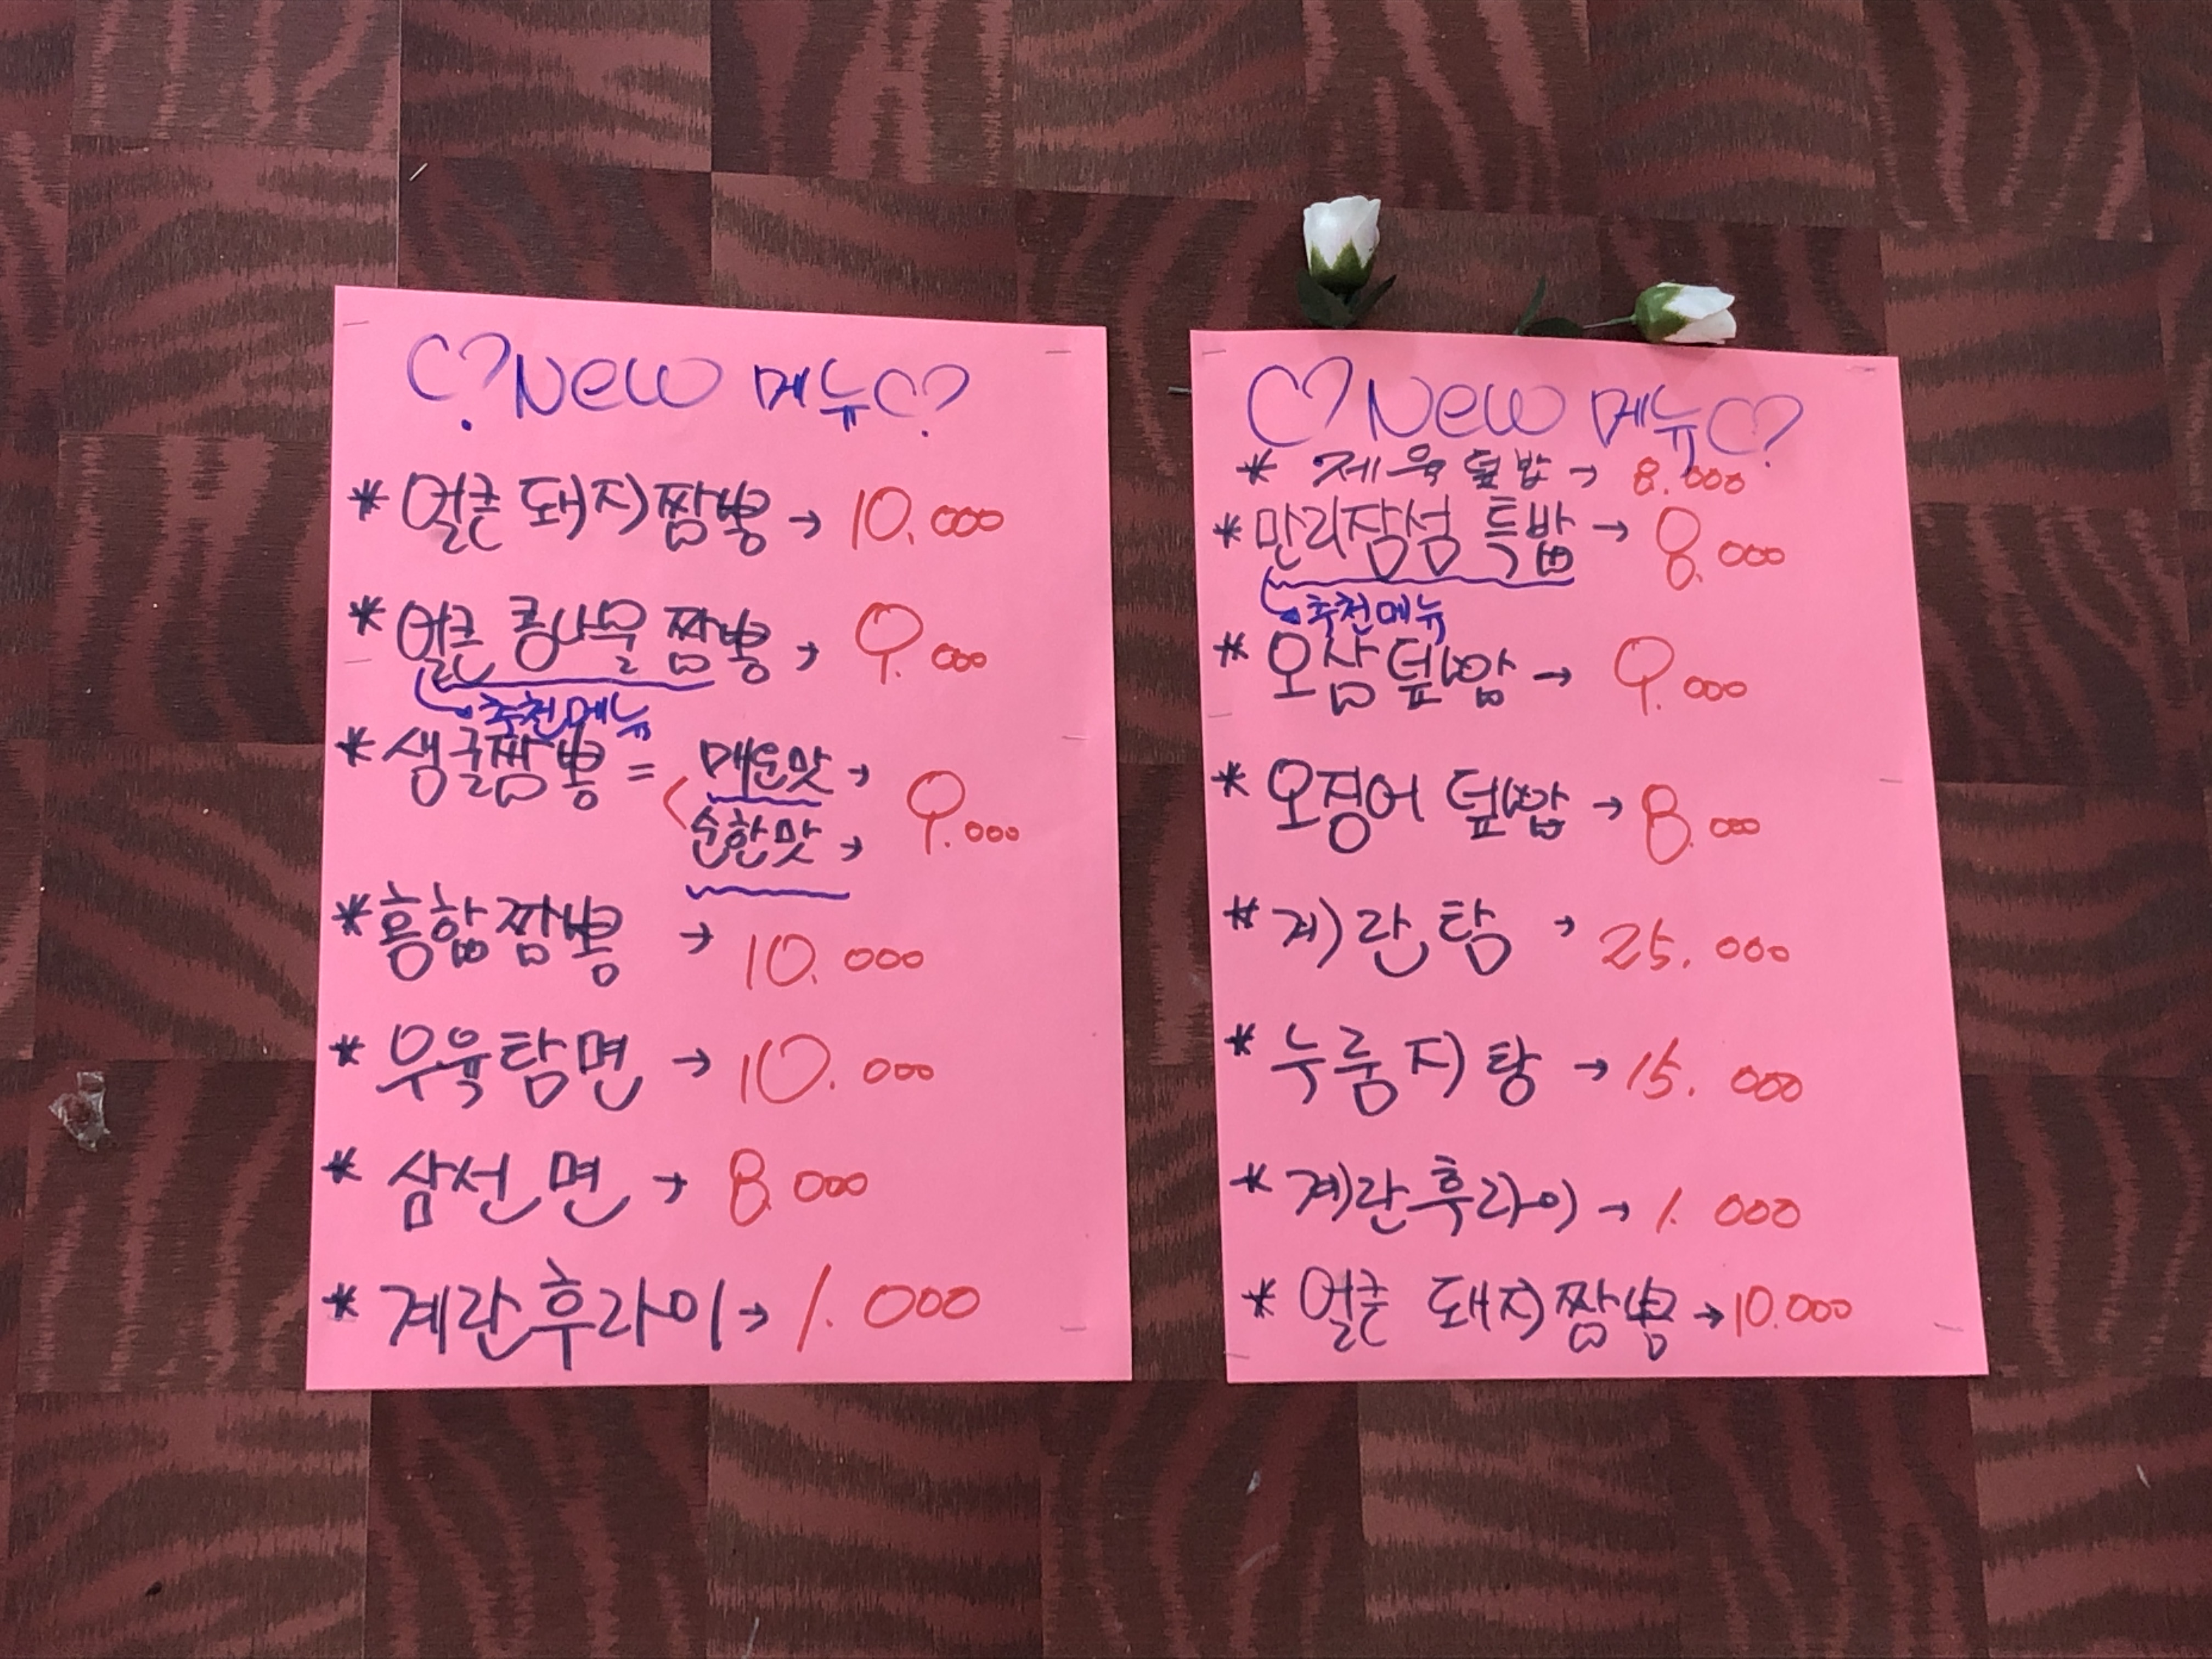 ♡New 메뉴♡
* 얼큰 돼지짬뽕 → 10.000
* 얼큰 콩나물 짬뽕 → 9.000
추천메뉴
* 생굴짬뽕 = 매운맛 → 9.000
순한맛 →
* 홍합짬뽕 → 10.000
* 우육탕면 → 10.000
* 삼선면 → 8.000
* 계란후라이 → 1.000
♡New 메뉴♡
* 제육덮밥 → 8.000
* 만리장성 특밥 → 8.000
추천메뉴
* 오삼덮밥 → 9.000
* 오징어 덮밥 → 8.000
* 계란탕 → 25.000
* 누룽지탕 → 15.000
* 계란후라이 → 1.000
* 얼큰 돼지짬뽕 → 10.000